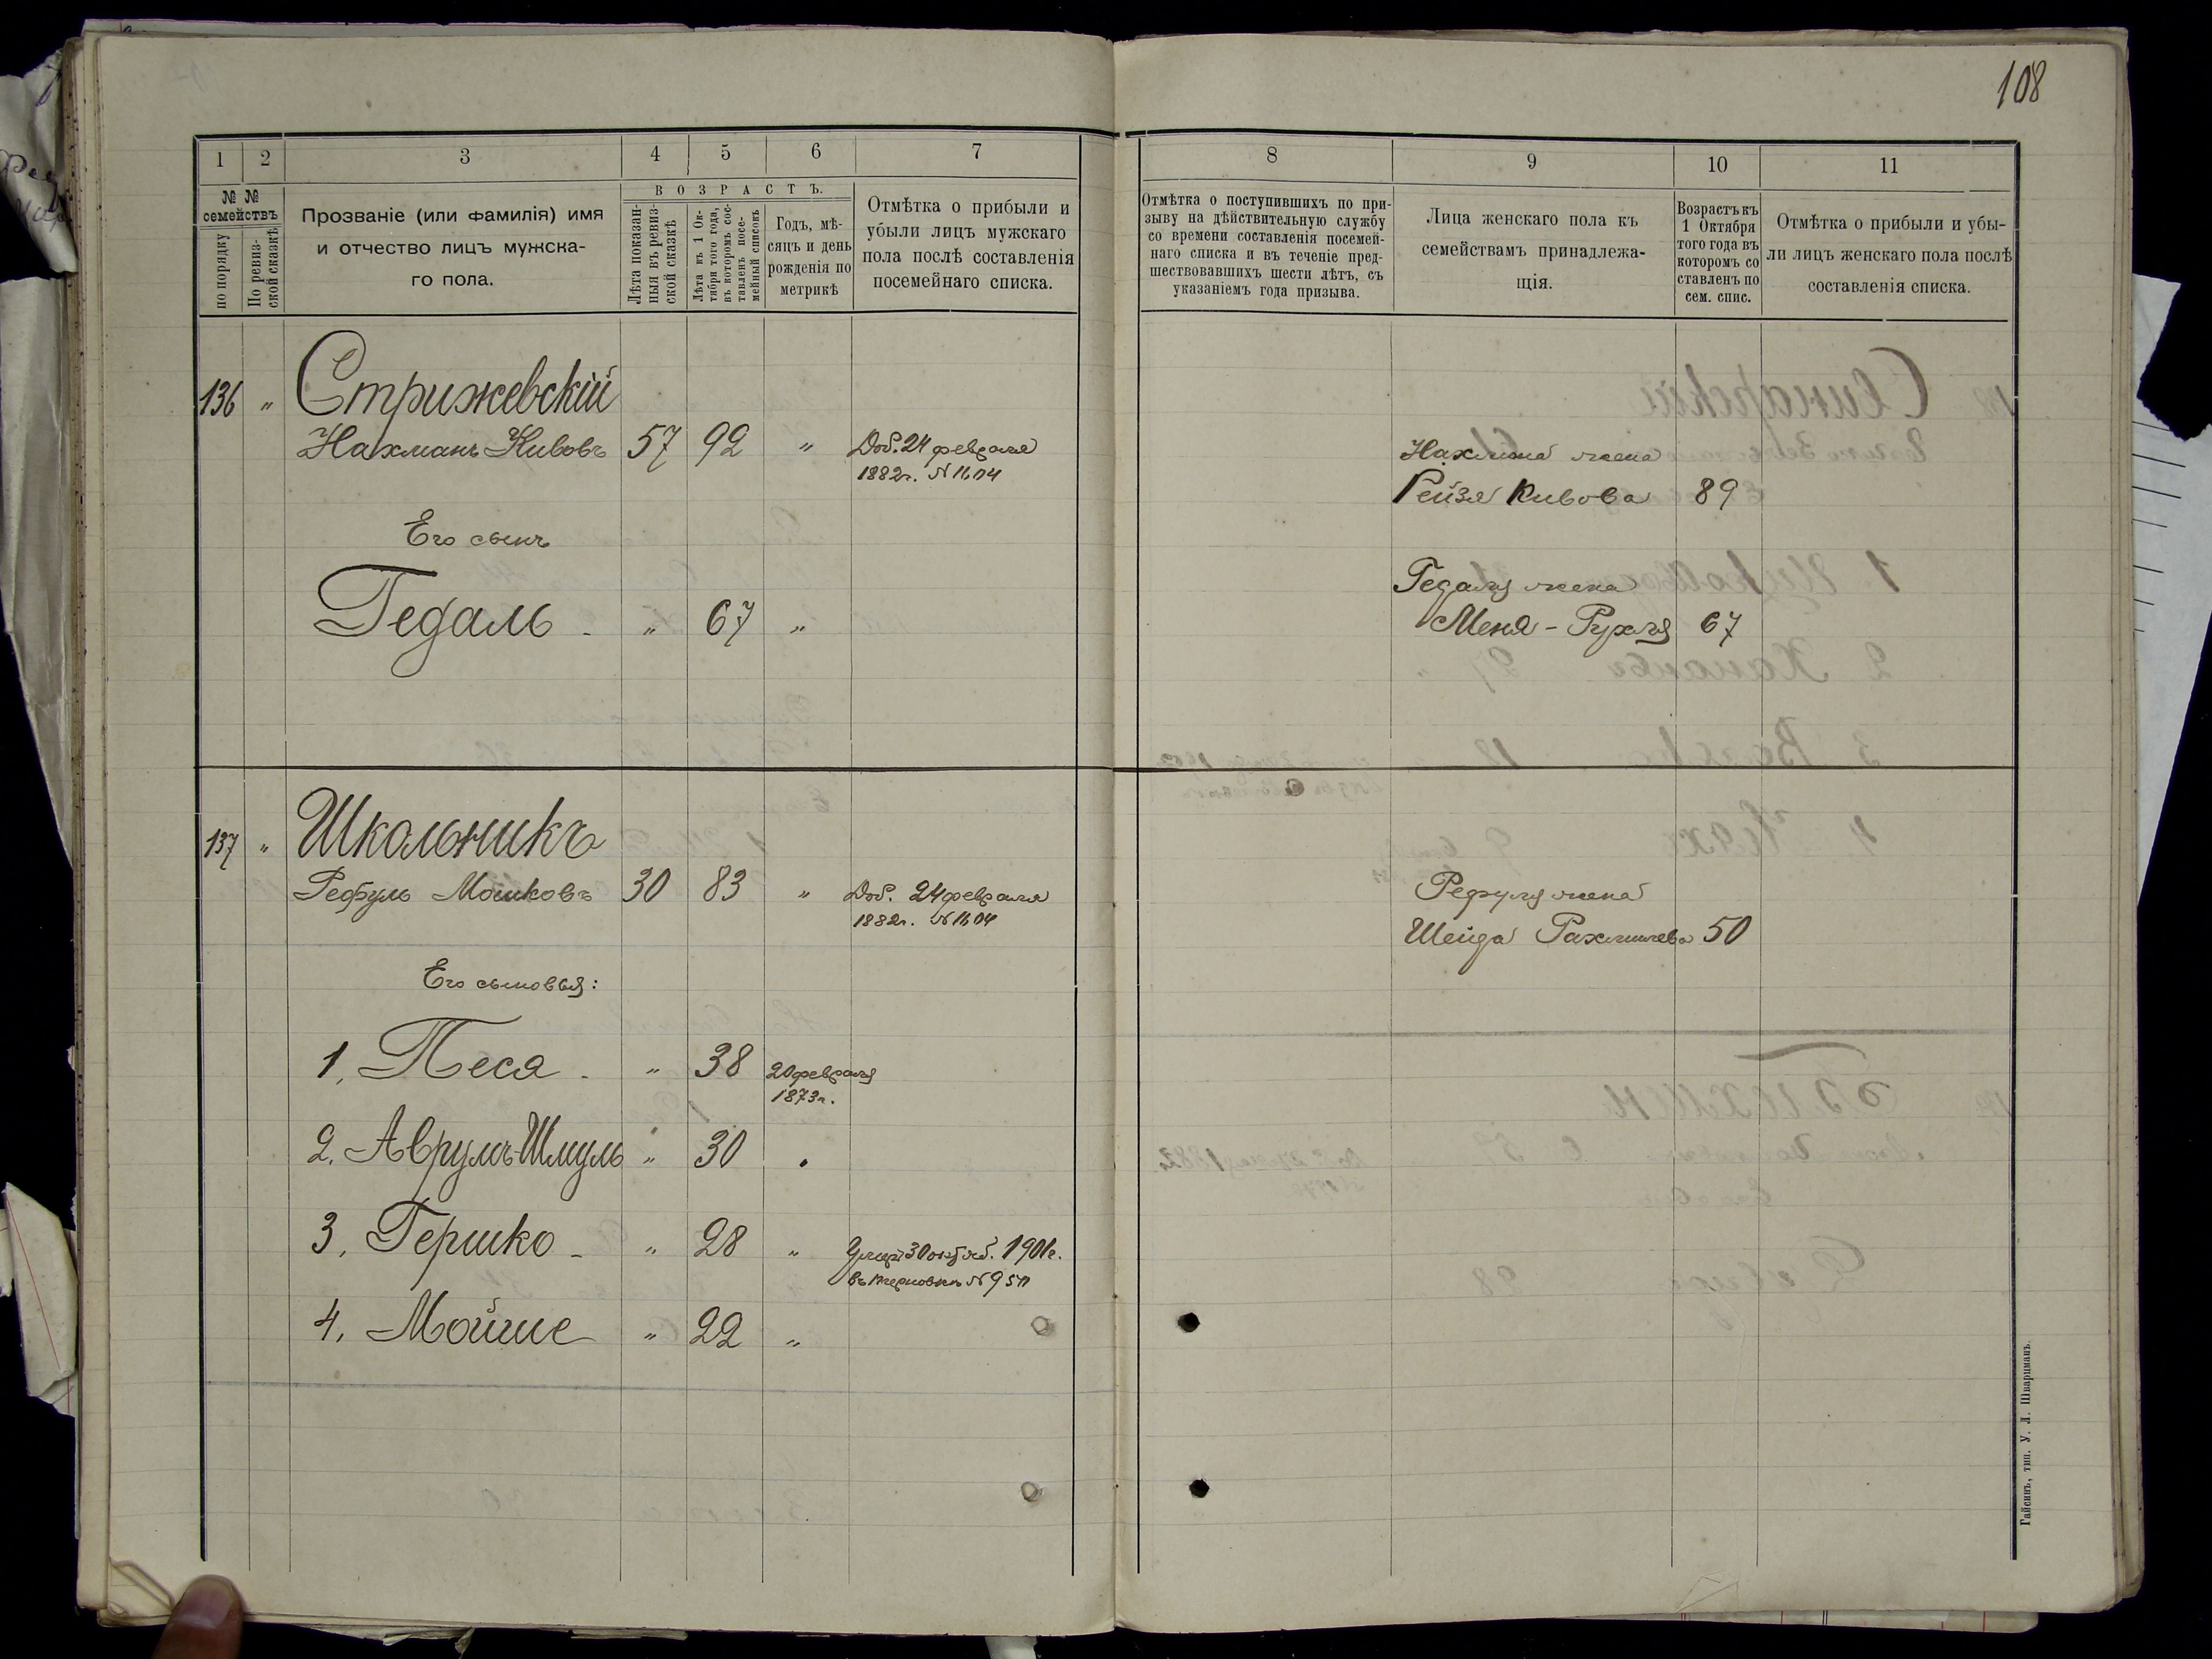 108
1 2 3 4 5 6 7
№ №
семействъ
по порядку
По ревиз-
ской сказкѣ
Прозваніе (или фамилія) имя
и отчество лицъ мужска-
го пола.
ВОЗРАСТЪ.
Лѣта показан-
ныя въ ревиз-
ской сказкѣ
Лѣта къ 1 Ок-
тября того года,
въ которомъ сос-
тавленъ посе-
мейный списокъ
Годъ, мѣ-
сяцъ и день
рожденія по
метрикѣ
Отмѣтка о прибыли и
убыли лицъ мужскаго
пола послѣ составленія
посемейнаго списка.
136 " Стрижевскій
Нахманъ Кивовъ 57 92 " Доб. 24 февраля
1882г. №1104
Его сынъ
Гедаль - " 67 "
137 " Школьникъ
Рефуль Мошковъ 30 83 " Доб. 24 февраля
1882г. №1104
Его сыновья:
1, Песя - " 38 20 февраля
1873г.
2, Аврумъ-Шмуль " 30
3, Гершко - " 28 " 30 1901г.
4, Мойше " 22 "
8 9 10 11
Отмѣтка о поступившихъ по при-
зыву на дѣйствительную службу
со времени составленія посемей-
наго списка и въ теченіе пред-
шествовавшихъ шести лѣтъ, съ
указаніемъ года призыва.
Лица женскаго пола къ
семействамъ принадлежа-
щія.
Возрастъ къ
1 Октября
того года въ
которомъ со
ставленъ по
сем. спис.
Отмѣтка о прибыли и убы-
ли лицъ женскаго пола послѣ
составленія списка.
Нахмана жена
Рейзя Кивова 89
Гедаля жена
Меня-Рухля 67
Рефуля жена
Шейда Рахмилева 50
Гайсинъ, тип. У. Л. Шварцманъ.